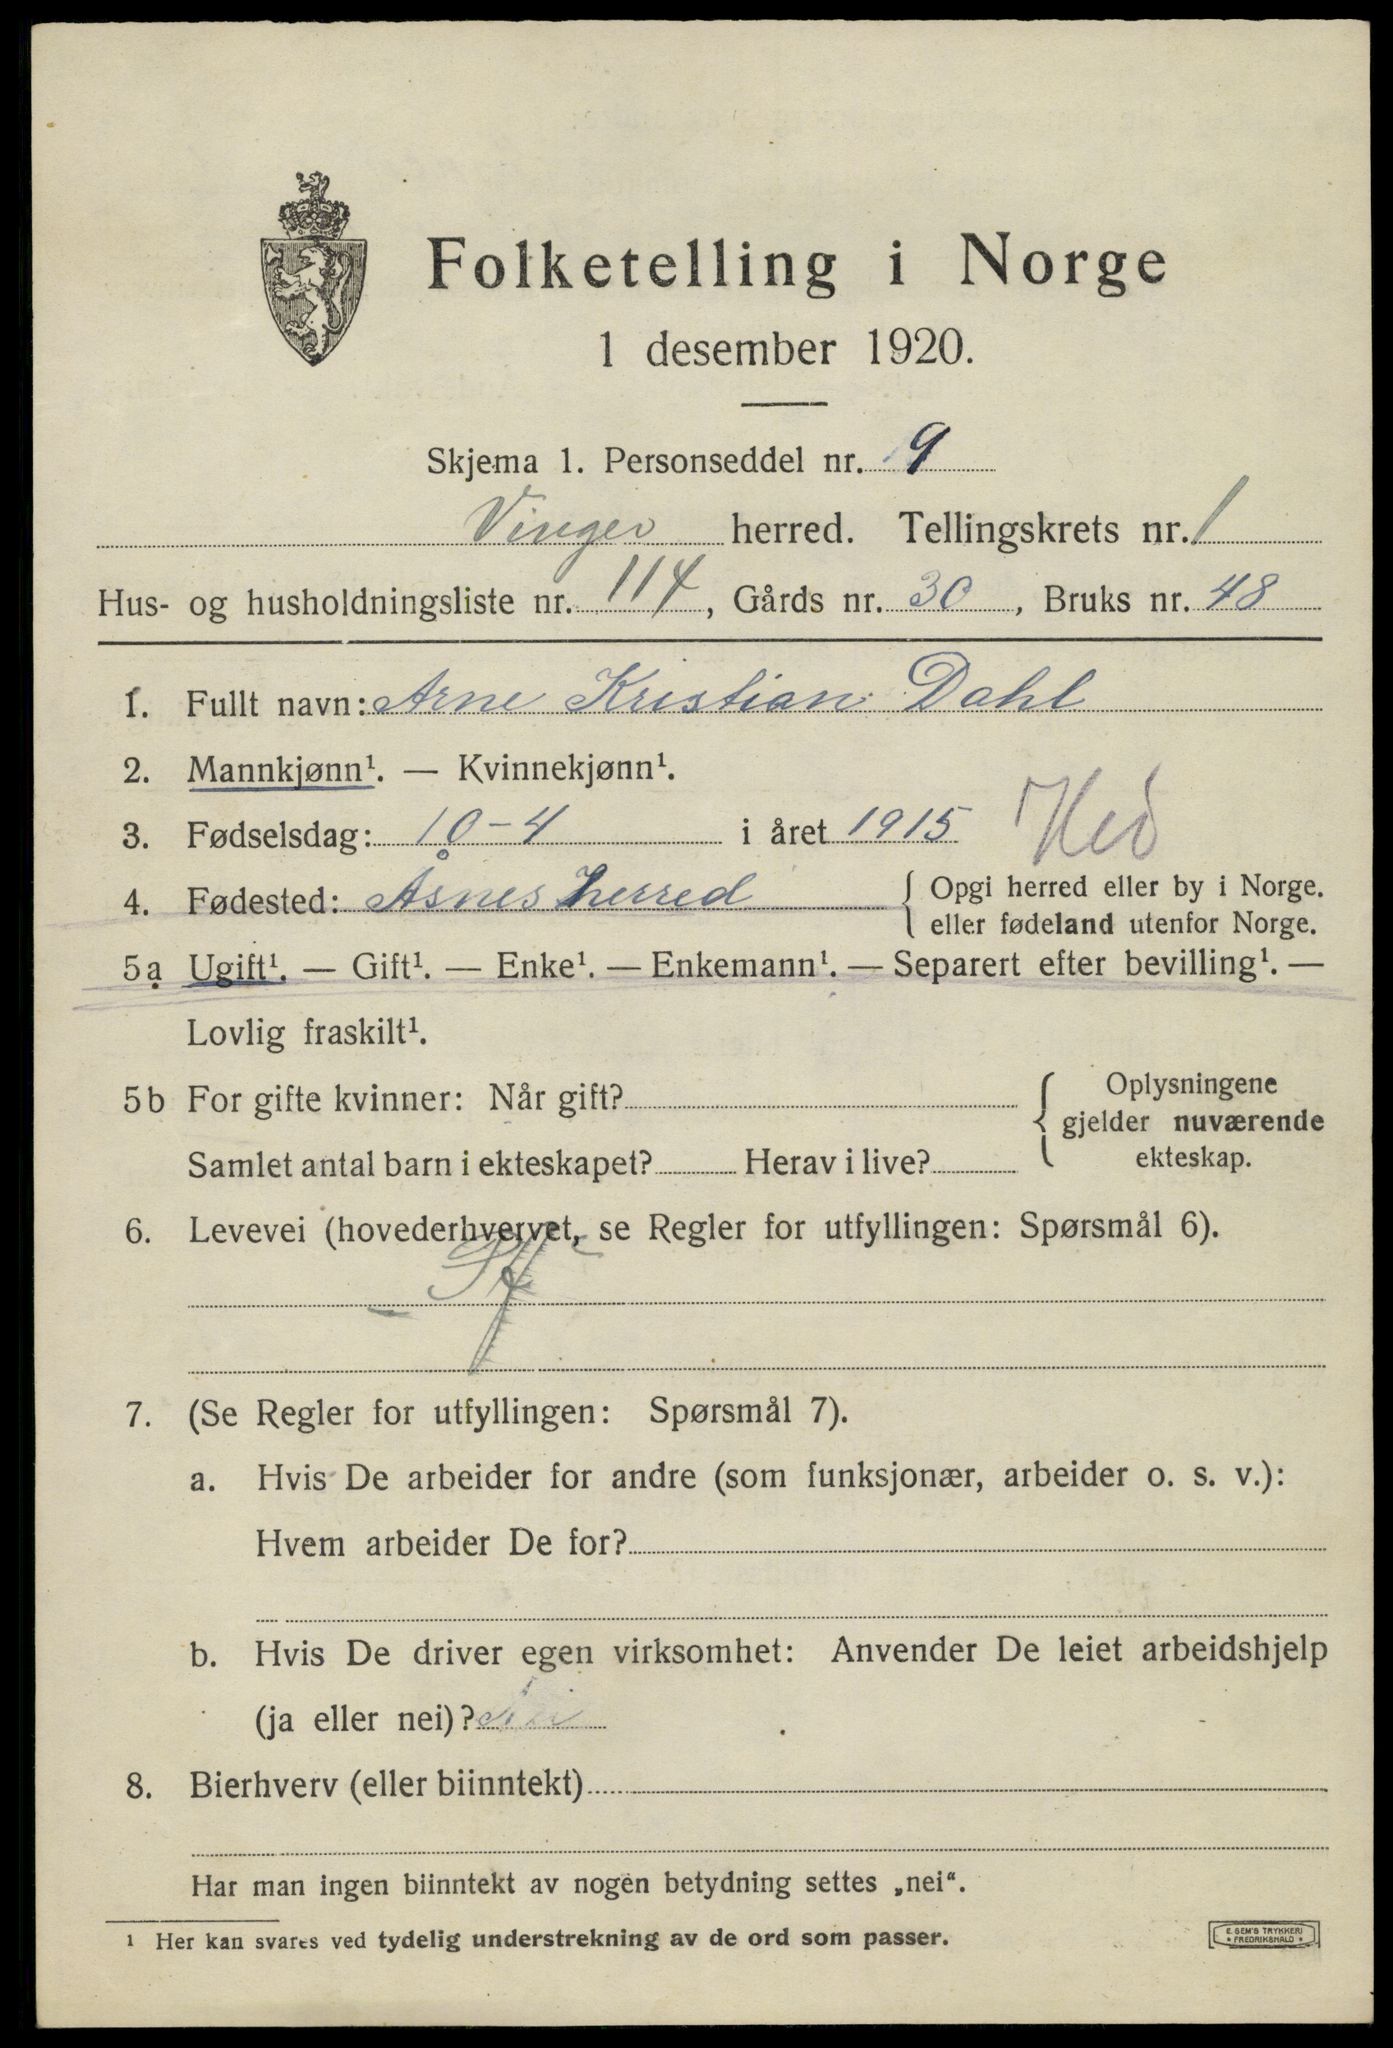 Folketelling i Norge
1 desember 1920.
Skjema 1. Personseddel nr. 9
Vinger herred. Tellingskrets nr. 1
Hus- og husholdningsliste nr. 114, Gårds nr. 30, Bruks nr. 48
1. Fullt navn: Arne Kristian Dahl
2. Mannkjønn¹. — Kvinnekjønn¹.
3. Fødselsdag: 10-4 i året 1915
Hed
4. Fødested: Åsnes herred { Opgi herred eller by i Norge.
eller fødeland utenfor Norge.
5a Ugift¹. — Gift¹. — Enke¹. — Enkemann¹. — Separert efter bevilling¹. —
Lovlig fraskilt¹.
5b For gifte kvinner: Når gift?
Samlet antal barn i ekteskapet? Herav i live?
{ Oplysningene
gjelder nuværende
ekteskap.
6. Levevei (hovederhvervet, se Regler for utfyllingen: Spørsmål 6).
7. (Se Regler for utfyllingen: Spørsmål 7).
a. Hvis De arbeider for andre (som funksjonær, arbeider o. s. v.):
Hvem arbeider De for?
b. Hvis De driver egen virksomhet: Anvender De leiet arbeidshjelp
(ja eller nei)? Nei
8. Bierhverv (eller biinntekt)
Har man ingen biinntekt av nogen betydning settes „nei“.
¹ Her kan svares ved tydelig understrekning av de ord som passer.
E. SEM'S TRYKKERI
* FREDRIKSHALD *